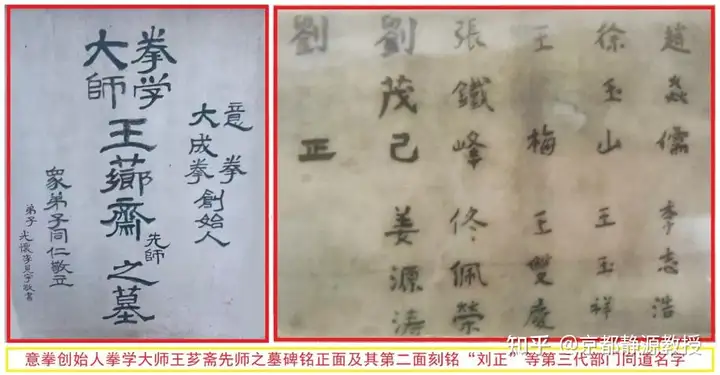 意拳
大成拳
創始人
拳学
大師
王薌齋先师之墓
眾弟子同仁敬立
弟子 李見宇敬書
趙 儒 李志浩
徐玉山 王玉祥
王梅 王雙慶
張鐵峰 佟佩榮
劉茂己 姜源濤
劉正
知乎 @京都静源教授
意拳创始人拳学大师王芗斋先师之墓碑铭正面及其第二面刻铭“刘正”等第三代部门同道名字